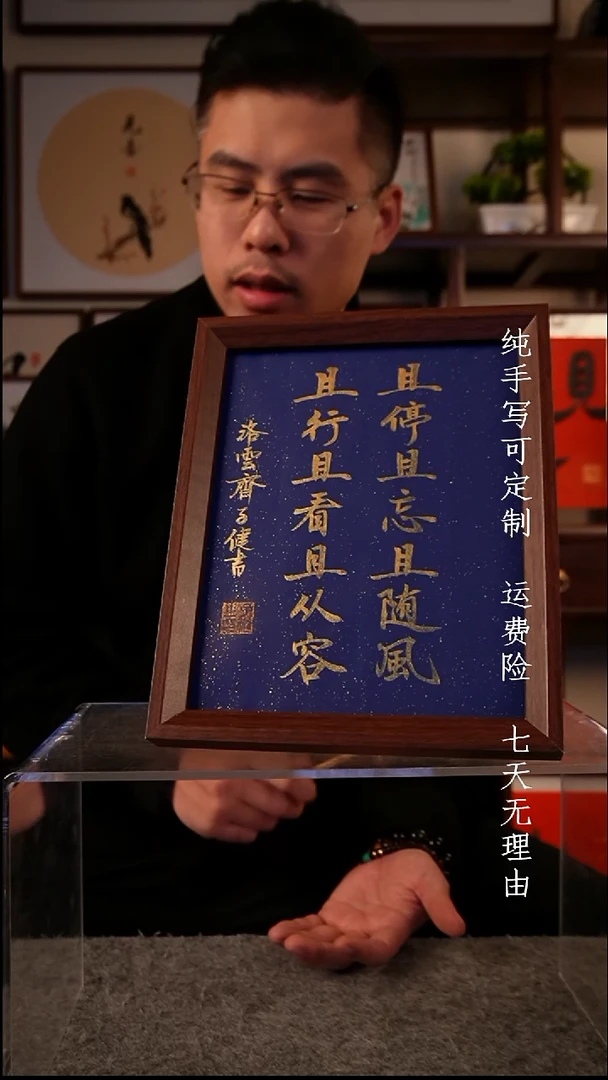 且停且忘且随風
且行且看且从容
洛雲齊子健書
纯手写可定制 运费险 七天无理由